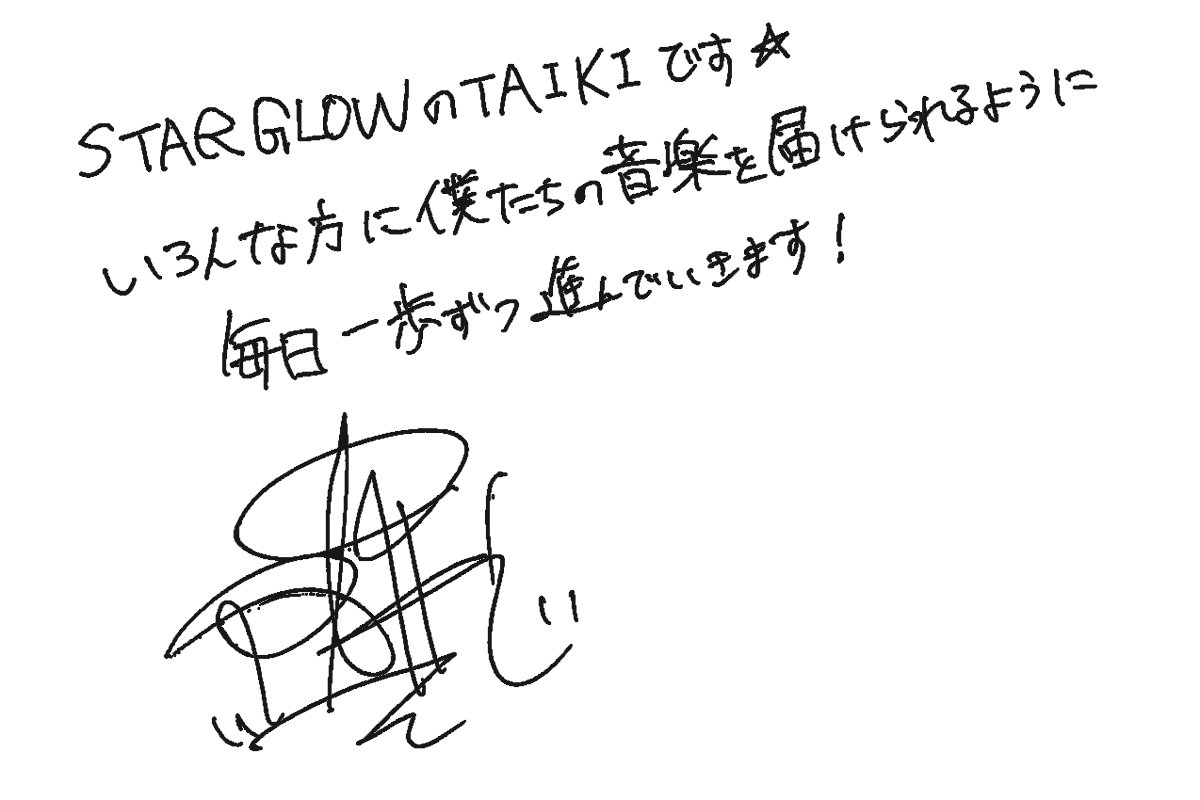 STARGLOWのTAIKIです☆
いろんな方に僕たちの音楽を届けられるように
毎日一歩ずつ進んでいきます!